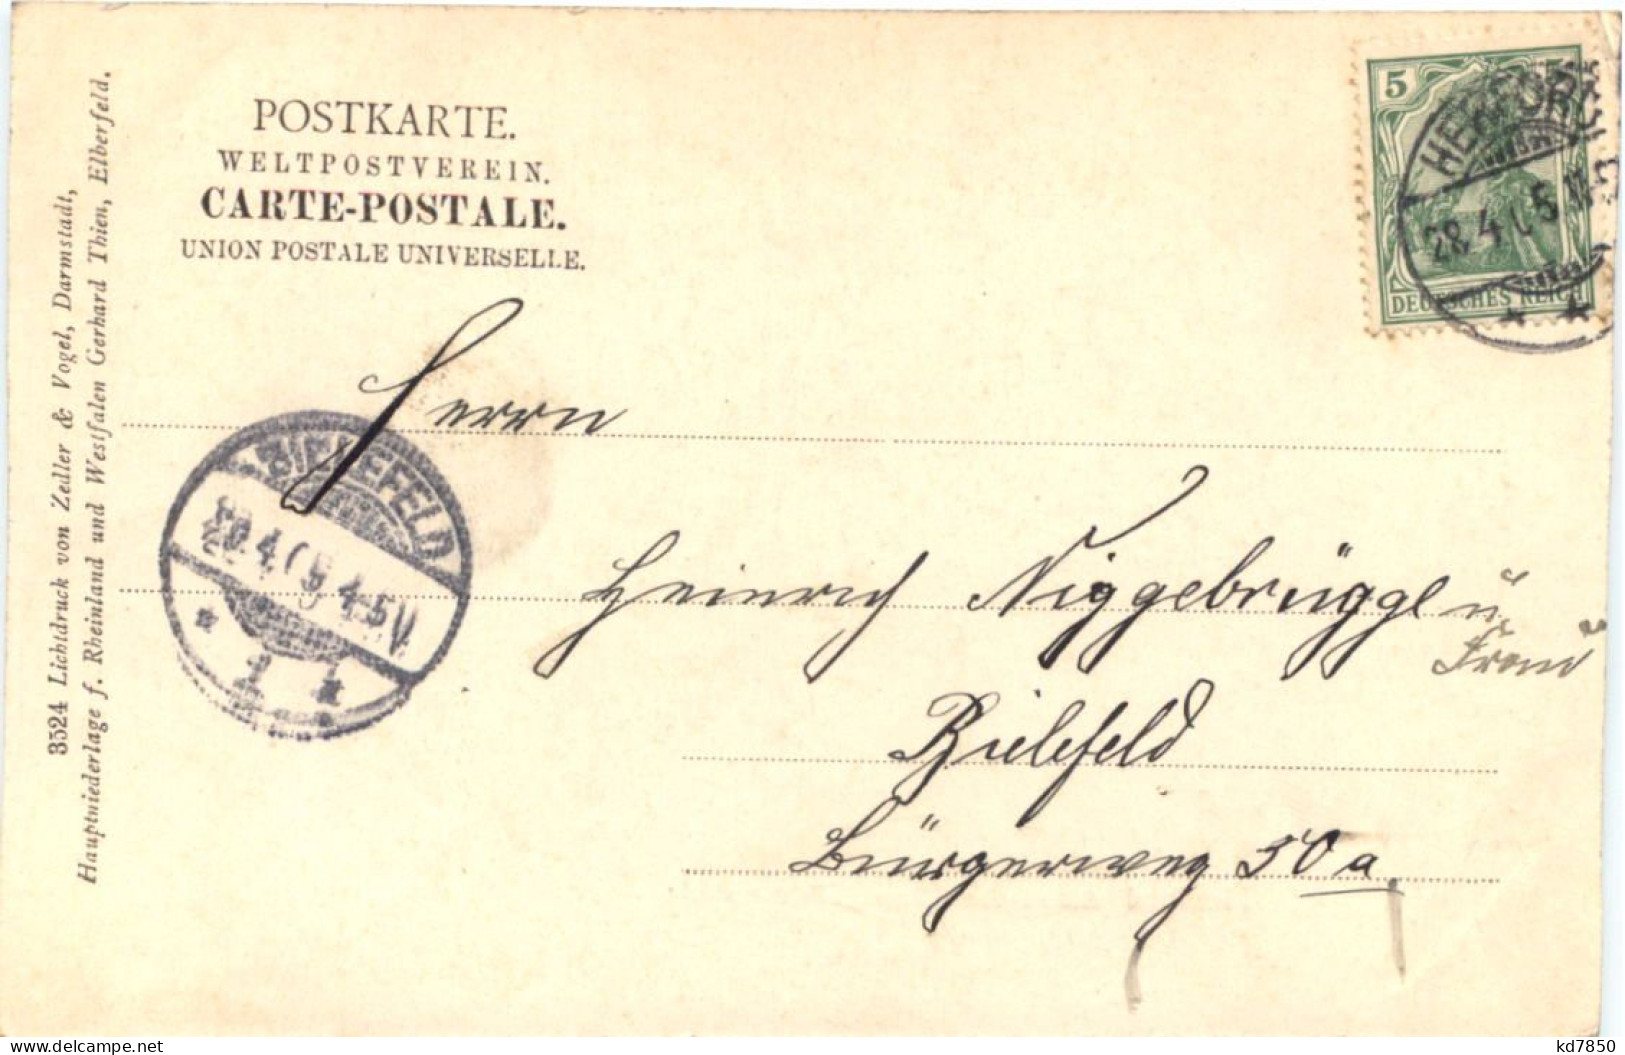 POSTKARTE.
WELTPOSTVEREIN.
CARTE-POSTALE.
UNION POSTALE UNIVERSELLE.
3524 Lichtdruck von Zedler & Vogel, Darmstadt,
Hauptniederlage f. Rheinland und Westfalen Gerhard Thien, Elberfeld.
5
HERFORD
28.4
DEUTSCHES REICH
BIELEFELD
4-5V
1
Herrn
Heinrich Niggebrügge u.
Frau
Bielefeld
Bürgerweg 50a
www.delcampe.net
kd7850